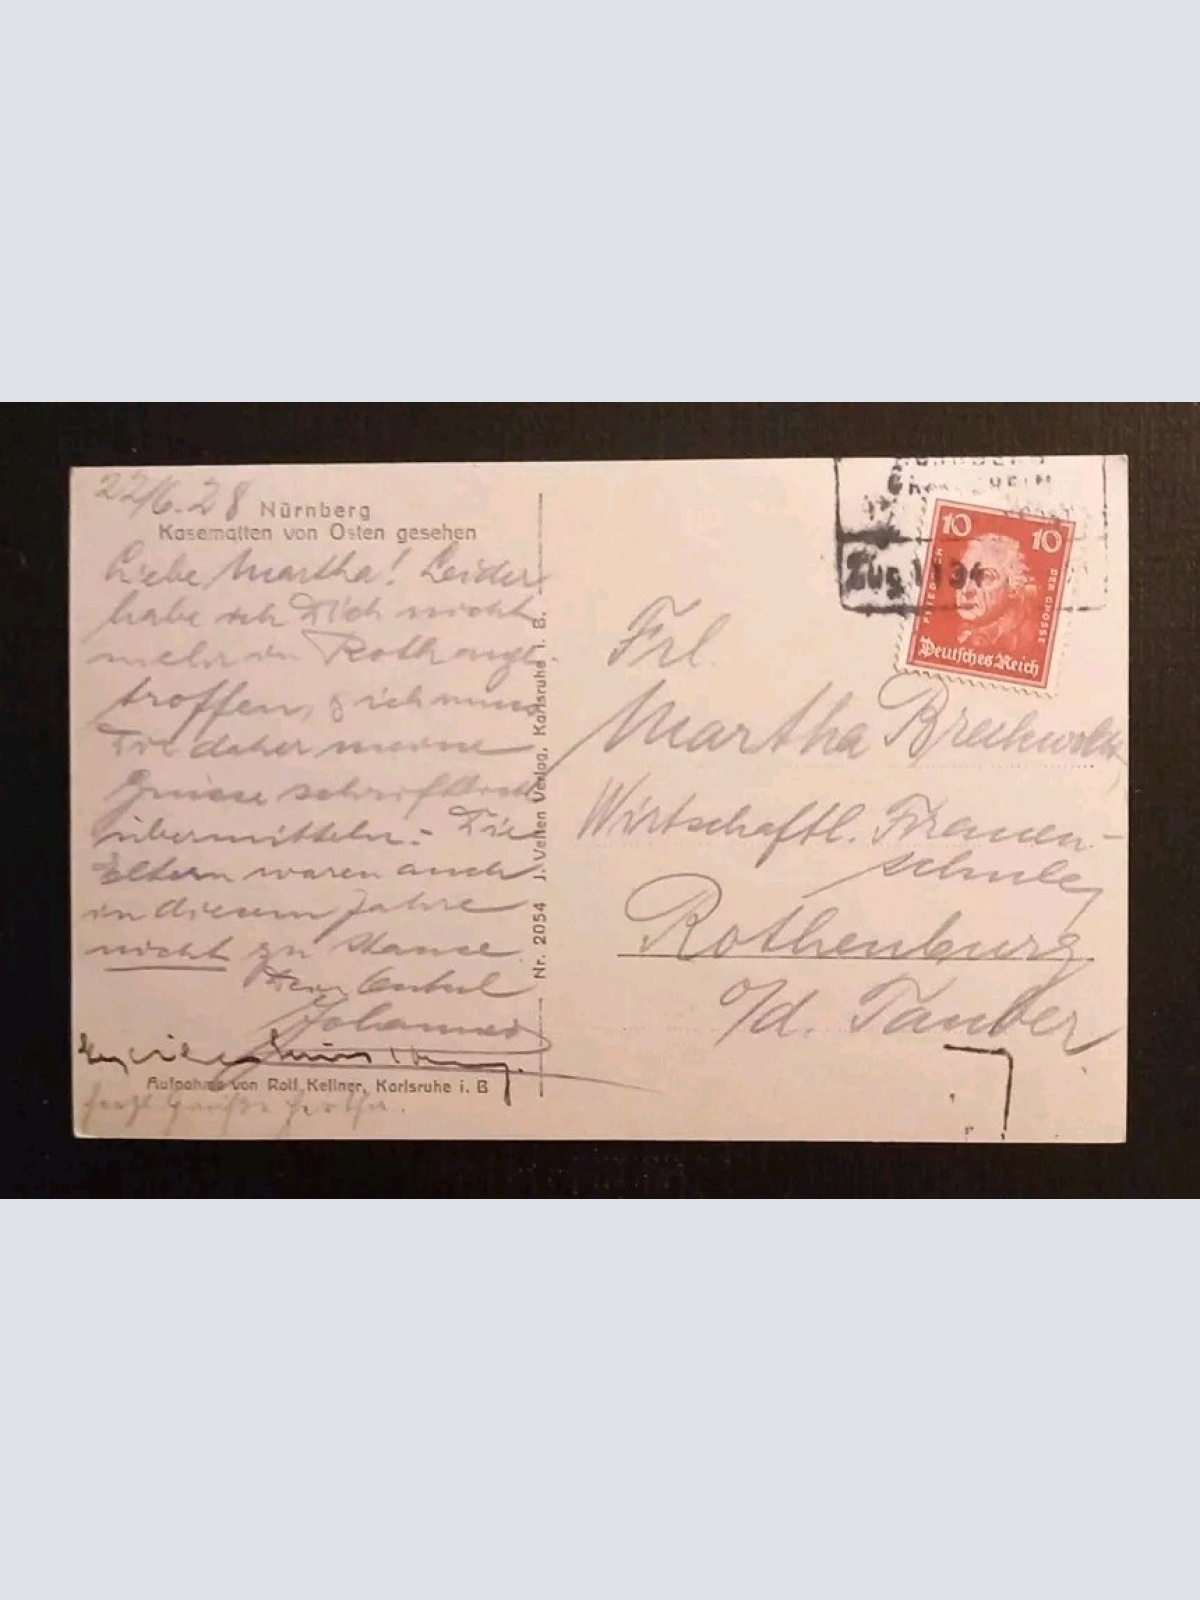 22/6.28
Nürnberg
Kasematten von Osten gesehen
Liebe Martha! Leider
habe ich Dich nicht
mehr in Rothenge
troffen, ich muss
Dir daher meine
Grüsse schriftlich
übermitteln. - Die
Eltern waren auch
in diesem Jahre
nicht zu Hause.
Dein Onkel
Johannes
Aufnahme von Rolf Kellner, Karlsruhe i. B
Herzl. Grüße Hertha.
Nr. 2054 J. Velten Verlag, Karlsruhe i. B.
GROSSE
Zug 1134
10 10
FRIEDRICH DER GROSSE
Deutsches Reich
Frl.
Martha
Wirtschaftl. Frauen-
schule,
Rothenburg
o/d. Tauber